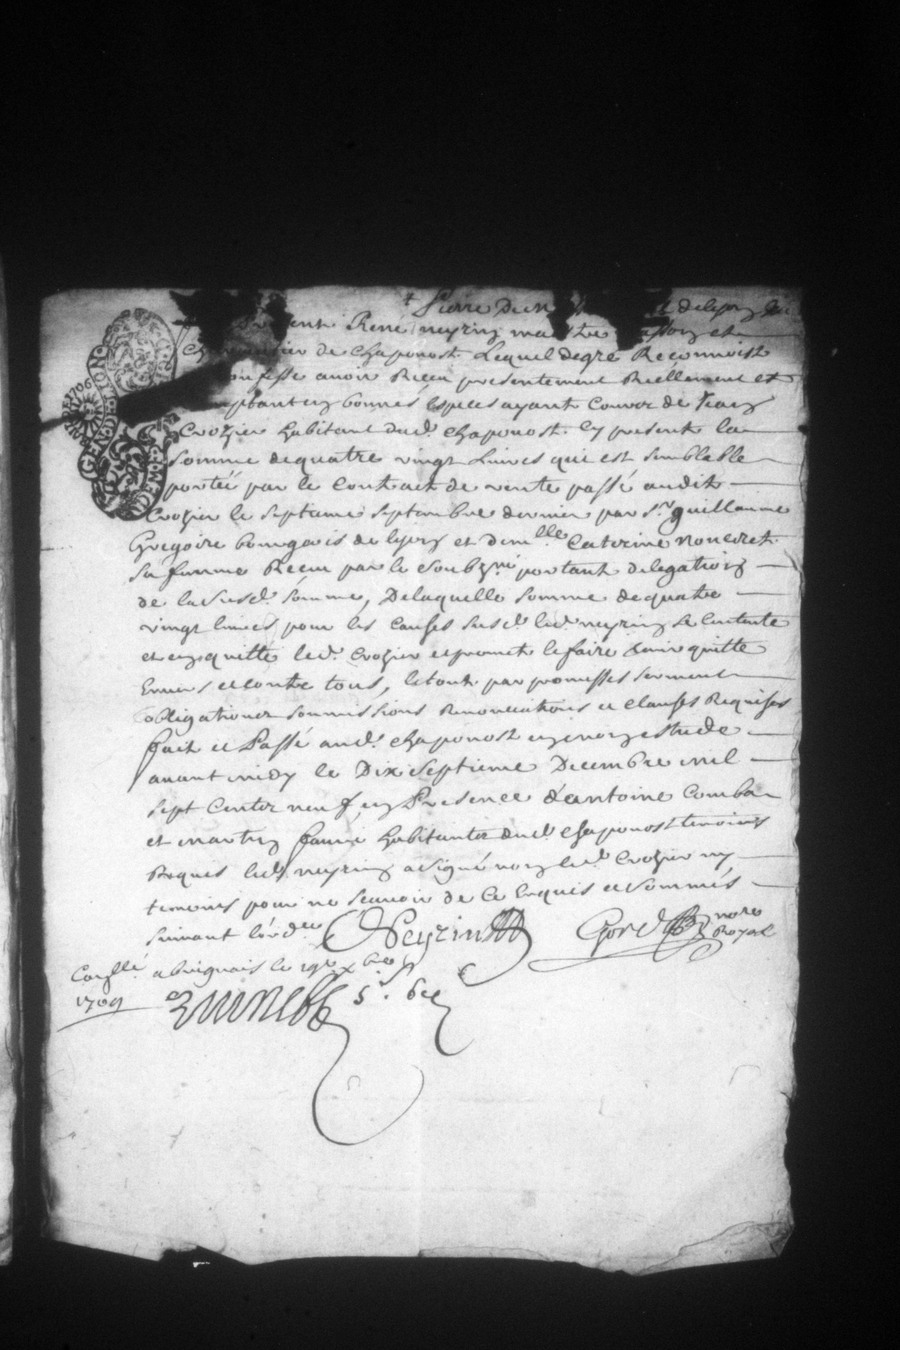 Pierre De
René neyrin
de Chaponost Lequel de gré Reconnoist
confesse avoir Receu presentement Reellement et
en bonnes especes ayant Cours de Jean
Crozier habitant dud. Chaponost cy present la
somme de quatre vingt Livres qui est semblable
portée par le Contract de vente passé audit
Crozier le septieme septembre dernier par Sr guillaume
Gregoire bourgois de lyon et demlle Caterine
sa femme Receu par le Soubzné portant delegation
de la susd. somme, De laquelle somme de quatre
vingt livres pour les causes susd. led. neyrin se contente
et en quitte led. Crozier et promet le faire tenir quitte
Envers et contre tous, le tout par promesses serment
obligations soumissions Renonciations et clauses Requises
fait et Passé aud. Chaponost en estude
avant midy le Dix septieme Decembre mil
sept Centz neuf en Presence d'antoine Comba
et martin faure habitantz dud. Chaponost temoins
Requis led. neyrin a signé non led. Crozier ny
temoins pour ne scavoir de ce Enquis et sommés
suivant l'orde
CNeyrin Gord nore Royal
Conllé a brignais le 19e xbre
1709 5s. 6d